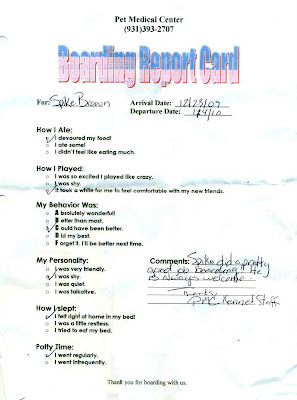 Pet Medical Center
(931)393-2707
Boarding Report Card
For: Spike Brown Arrival Date: 12/23/09
Departure Date: 1/4/10
How I Ate:
I devoured my food!
I ate some!
I didn't feel like eating much.
How I Played:
I was so excited I played like crazy.
I was shy.
It took a while for me to feel comfortable with my new friends.
My Behavior Was:
Absolutely wonderful!
Better than most.
Could have been better.
Did my best.
Forget it. I'll be better next time.
My Personality:
I was very friendly.
I was shy.
I was quiet.
I was talkative.
Comments: Spike did a pretty
good job boarding. He
is always welcome.
Thanks,
PMC Kennel Staff
How I slept:
I felt right at home in my bed!
I was a little restless.
I tried to eat my bed.
Potty Time:
I went regularly.
I went infrequently.
Thank you for boarding with us.